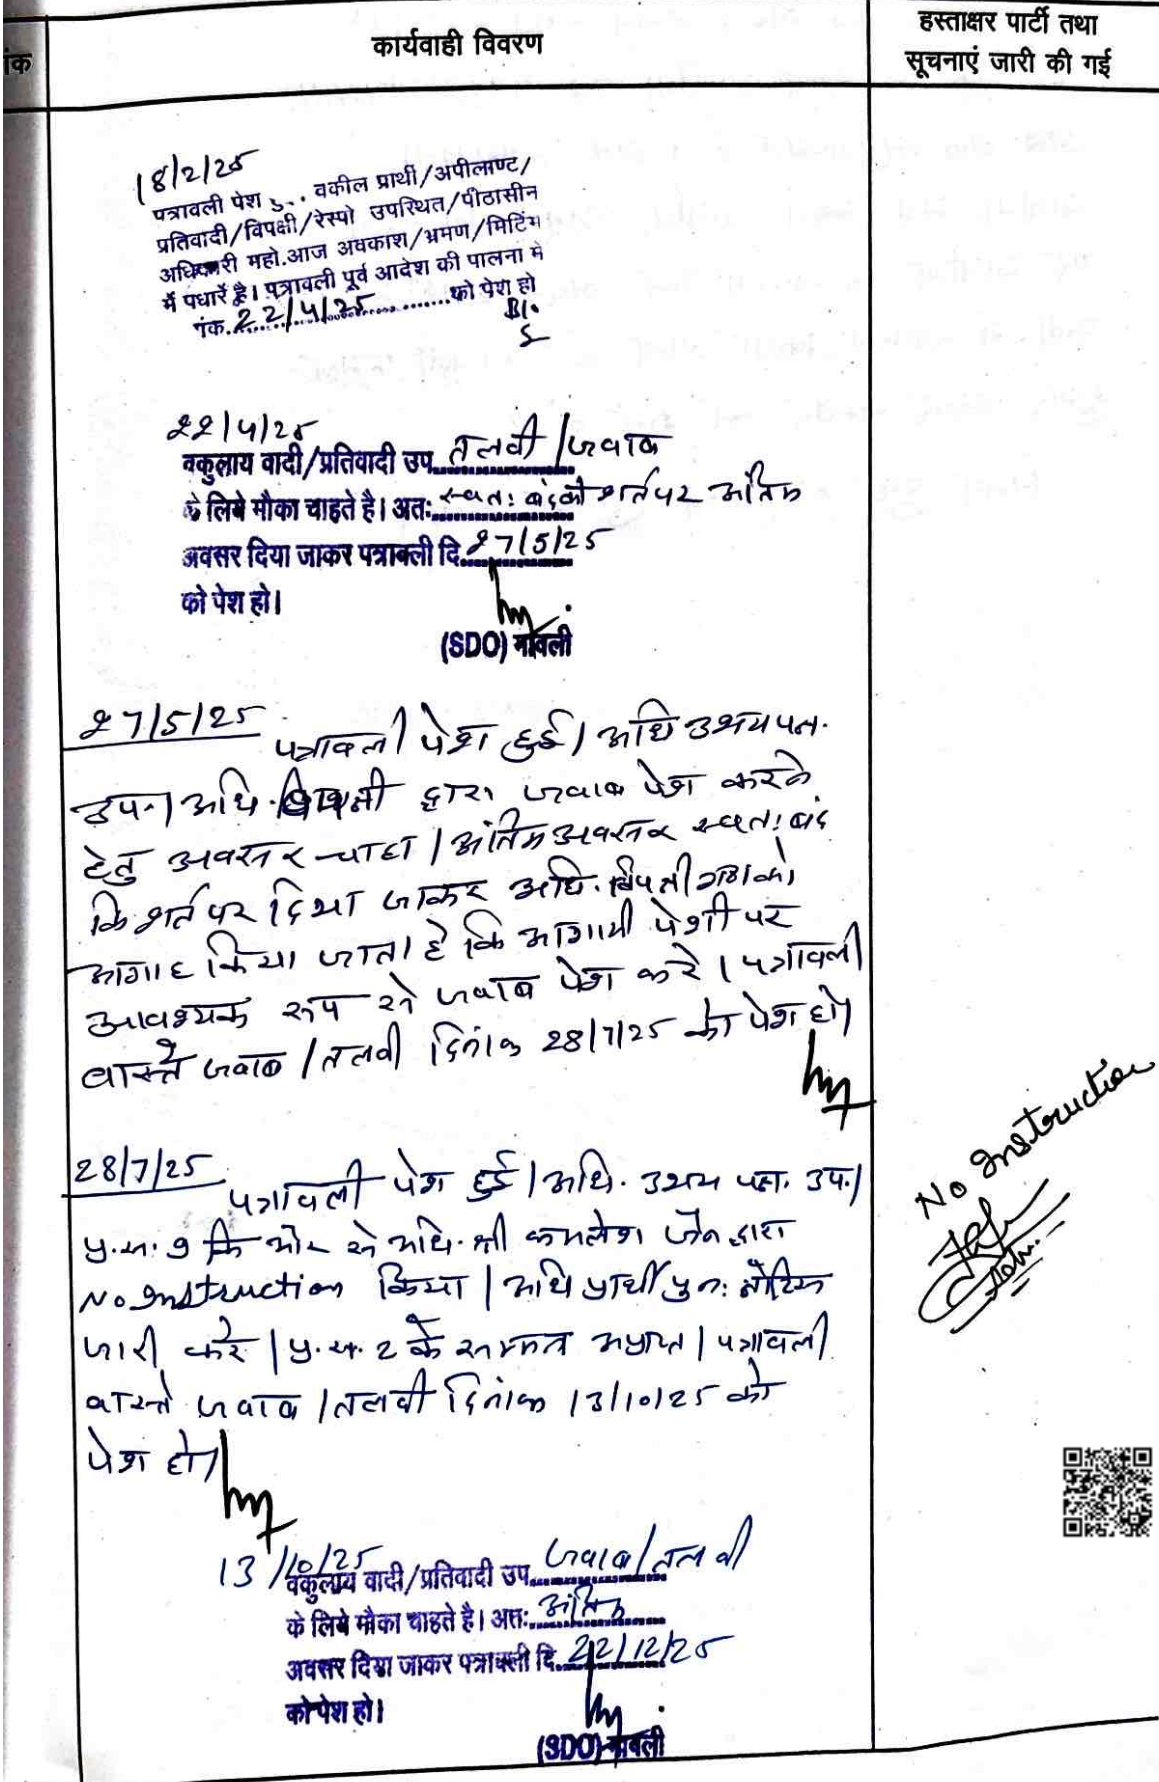 ंक
कार्यवाही विवरण
हस्ताक्षर पार्टी तथा
सूचनाएं जारी की गई
18/2/25
पत्रावली पेश वकील प्रार्थी/अपीलाण्ट/
प्रतिवादी/विपक्षी/रेस्पो उपस्थित/पीठासीन
अधिकारी महो.आज अवकाश/भ्रमण/मिटिंग
में पधारें है। पत्रावली पूर्व आदेश की पालना मे
नंक. 22/4/25 को पेश हो
22/4/25
वकुलाय वादी/प्रतिवादी उप. तलवी/जवाब
के लिये मौका चाहते है। अतः स्वतः बंद की शर्त पर अंतिम
अवसर दिया जाकर पत्रावली दि. 27/5/25
को पेश हो।
(SDO) मावली
27/5/25
पत्रावली पेश हुई। अधि उभयपक्ष.
उप.। अधि. विपक्षी द्वारा जवाब पेश करने
हेतु अवसर चाहा। अंतिम अवसर स्वतः बंद
कि शर्त पर दिया जाकर अधि. विपक्षी गण को
आगाह किया जाता है कि आगामी पेशी पर
आवश्यक रूप से जवाब पेश करे। पत्रावली
वास्ते जवाब/तलवी दिनांक 28/7/25 को पेश हो।
28/7/25
पत्रावली पेश हुई। अधि. उभय पक्ष. उप.।
9 कि ओर से अधि. श्री कमलेश जैन द्वारा
No Instruction किया। अधि प्रार्थी पुनः नोटिस
जारी करे। 2 के सम्मन अप्राप्त। पत्रावली
वास्ते जवाब/तलवी दिनांक 13/10/25 को
पेश हो।
No Instruction
13/10/25
वकुलाय वादी/प्रतिवादी उप. जवाब/तलवी
के लिये मौका चाहते है। अतः अंतिम
अवसर दिया जाकर पत्रावली दि. 22/12/25
को पेश हो।
(SDO) मावली